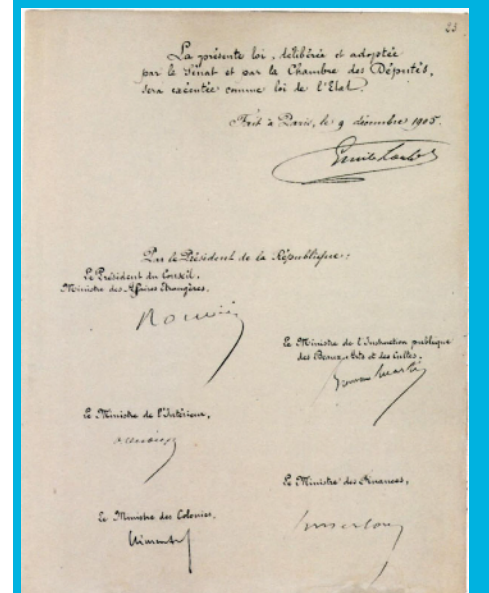 23
La présente loi, délibérée et adoptée
par le Sénat et par la Chambre des Députés,
sera exécutée comme loi de l'Etat.
Fait à Paris, le 9 décembre 1905.
Emile Loubet
Par le Président de la République:
Le Président du Conseil,
Ministre des Affaires Etrangères,
Rouvier
Le Ministre de l'Instruction publique
des Beaux-Arts et des Cultes,
Le Ministre de l'Intérieur,
Le Ministre des Finances,
Le Ministre des Colonies,